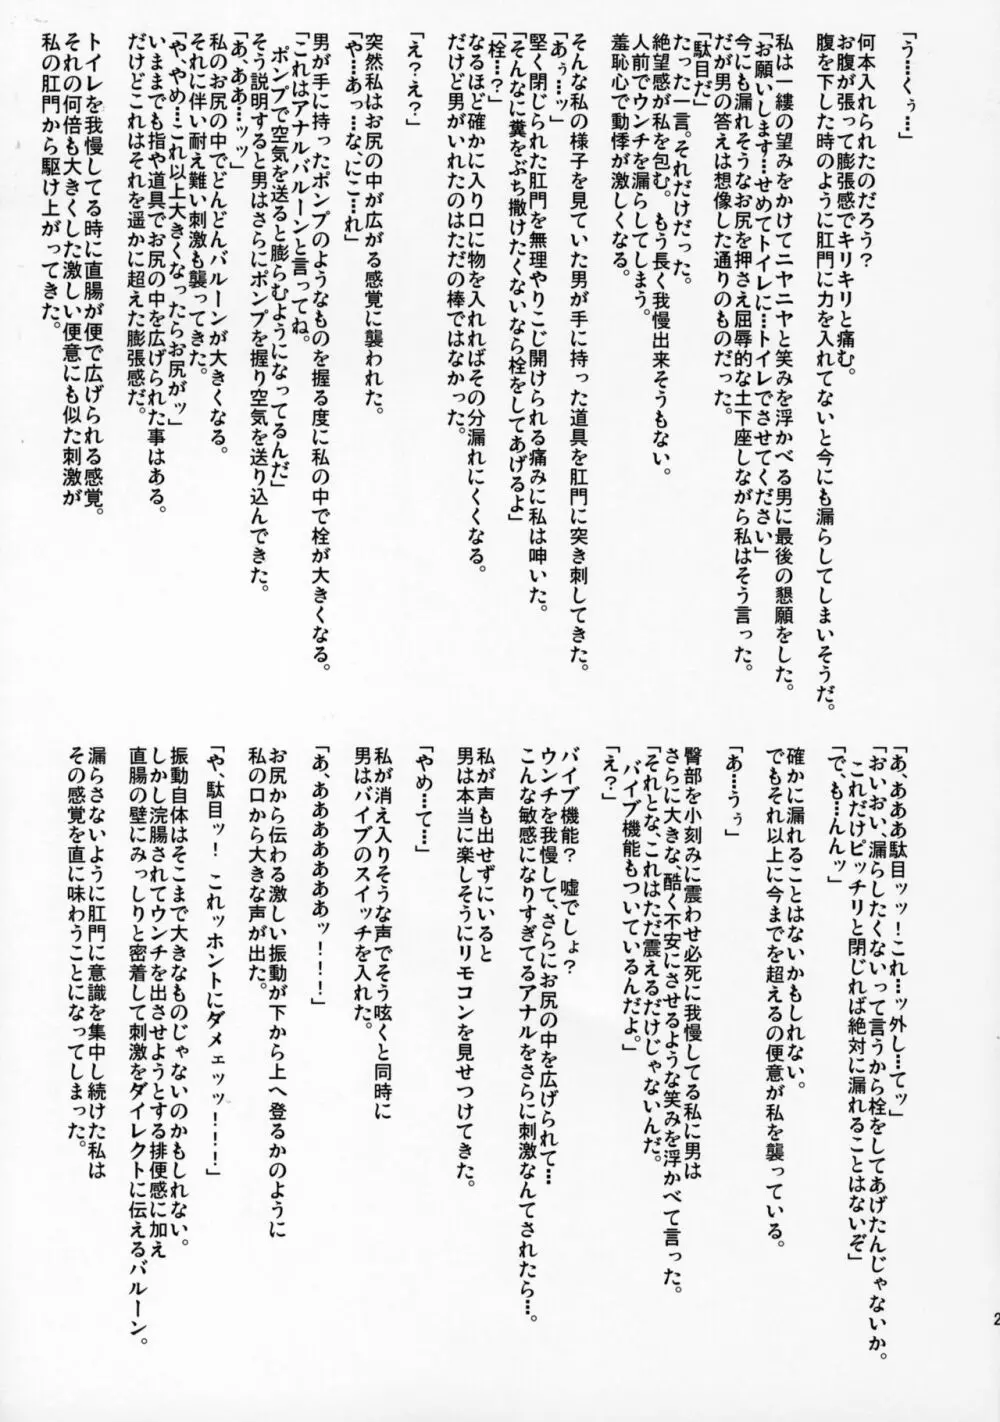 「う…くぅ…」
何本入れられたのだろう？
お腹が張って膨張感でキリキリと痛む。
腹を下した時のように肛門に力を入れてないと今にも漏らしてしまいそうだ。
私は一縷の望みをかけてニヤニヤと笑みを浮かべる男に最後の懇願をした。
「お願いします…せめてトイレに…トイレでさせてください」
今にも漏れそうなお尻を押さえ屈辱的な土下座しながら私はそう言った。
だが男の答えは想像した通りのものだった。
「駄目だ」
たった一言。それだけだった。
絶望感が私を包む。もう長く我慢出来そうもない。
人前でウンチを漏らしてしまう。
羞恥心で動悸が激しくなる。
そんな私の様子を見ていた男が手に持った道具を肛門に突き刺してきた。
「あぅ…ッ」
堅く閉じられた肛門を無理やりこじ開けられる痛みに私は呻いた。
「そんなに糞をぶち撒けたくないなら栓をしてあげるよ」
「栓…？」
なるほど確かに入り口に物を入れればその分漏れにくくなる。
だけど男がいれたのはただの棒ではなかった。
「え？え？」
突然私はお尻の中が広がる感覚に襲われた。
「や…あっ…な、にこ…れ」
男が手に持ったポンプのようなものを握る度に私の中で栓が大きくなる。
「これはアナルバルーンと言ってね。
ポンプで空気を送ると膨らむようになってるんだ」
そう説明すると男はさらにポンプを握り空気を送り込んできた。
「あ、ああ…ッッ」
私のお尻の中でどんどんバルーンが大きくなる。
それに伴い耐え難い刺激も襲ってきた。
「や、やめ…これ以上大きくなったらお尻がッ」
いままでも指や道具でお尻の中を広げられた事はある。
だけどこれはそれを遥かに超えた膨張感だ。
トイレを我慢してる時に直腸が便で広げられる感覚。
それの何倍も大きくした激しい便意にも似た刺激が
私の肛門から駆け上がってきた。
「あ、あああ駄目ッッ！これ…ッ外し…てッ」
「おいおい、漏らしたくないって言うから栓をしてあげたんじゃないか。
これだけピッチリと閉じれば絶対に漏れることはないぞ」
「で、も…んんッ」
確かに漏れることはないかもしれない。
でもそれ以上に今までを超えるの便意が私を襲っている。
「あ…うぅ」
臀部を小刻みに震わせ必死に我慢してる私に男は
さらに大きな、酷く不安にさせるような笑みを浮かべて言った。
「それとな、これはただ震えるだけじゃないんだ。
バイブ機能もついているんだよ。」
「え？」
バイブ機能？　嘘でしょ？
ウンチを我慢して、さらにお尻の中を広げられて…
こんな敏感になりすぎてるアナルをさらに刺激なんてされたら…。
私が声も出せずにいると
男は本当に楽しそうにリモコンを見せつけてきた。
「やめ…て…」
私が消え入りそうな声でそう呟くと同時に
男はバイブのスイッチを入れた。
「あ、ああああああッ！！！」
お尻から伝わる激しい振動が下から上へ登るかのように
私の口から大きな声が出た。
「や、駄目ッ！　これッホントにダメェッッ！！！」
振動自体はそこまで大きなものじゃないのかもしれない。
しかし浣腸されてウンチを出させようとする排便感に加え
直腸の壁にみっしりと密着して刺激をダイレクトに伝えるバルーン。
漏らさないように肛門に意識を集中し続けた私は
その感覚を直に味わうことになってしまった。
2